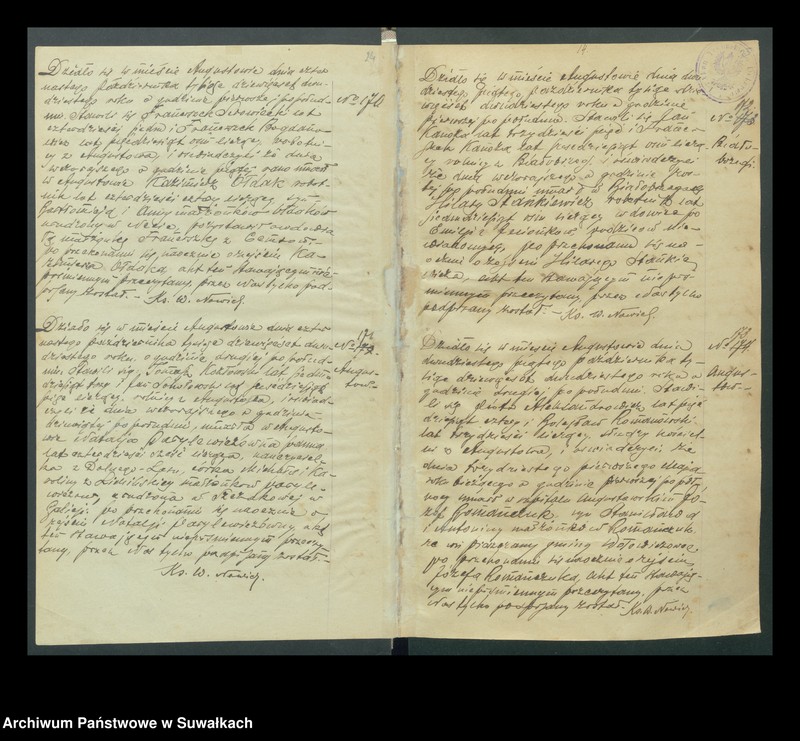 Działo się w mieście Augustowie dnia czter-
nastego Października tysiąc dziewięćset dwu-
dziestego roku o godzinie pierwszej po połud-
niu. Stawili się Franciszek lat
czterdzieści jeden i Franciszek Bogdano-
wicz lat pięćdziesiąt ośm liczący, robotni-
cy z Augustowa, i oświadczyli że dnia
wczorajszego o godzinie piątej rano umarł
w Augustowie Kazimierz Ołdak robot-
nik lat czterdzieści cztery liczący syn
Bartłomieja i Anny małżonków Ołdaków
urodzony w pozostawił owdowiałą
żonę Franciszkę z
po przekonaniu się naocznie o zejściu Ka-
zimierza Ołdaka, akt ten stawającym niepi-
śmiennym przeczytany, przez Nas tylko pod-
pisany został. – Ks. W. Nowicki.
No 170
Działo się w mieście Augustowie dnia czter-
nastego Października tysiąc dziewięćset dwu-
dziestego roku, o godzinie drugiej po połud-
niu. Stawili się, Tomasz Kozłowski lat
dziesiąt trzy i Jan lat pięćdziesiąt
pięć liczący, rolnicy z Augustowa, i oświad-
czyli że dnia wczorajszego o godzinie
dziewiątej po południu, umarła w Augusto-
wie Natalja Pasylewiczówna panna
lat czterdzieści sześć licząca, nauczyciel-
ka z córka Michała i Ka-
roliny z małżonków Pasyle-
wiczów, urodzona w w
Galicji. po przekonaniu się naocznie o
zejściu Natalji Pasylewiczówny, akt
ten stawającym niepiśmiennym przeczy-
tany, przez Nas tylko podpisany został. –
Ks. W. Nowicki.
No 171
Augus-
tow.
14
Działo się w mieście Augustowie dnia dwu-
dziestego piątego października tysiąc dzie-
więćset dwudziestego roku o godzinie
pierwszej po południu. Stawili się Jan
Kańska lat trzydzieści pięć i Fran-
ciszek Kańska lat pięćdziesiąt ośm liczą-
cy rolnicy z Białobrzeg, i oświadczyli
że dnia wczorajszego o godzinie
po południu umarł w Białobrzegach
Hilary Stankiewicz robotnik lat
siedmdziesiąt ośm liczący wdowiec po
Emilji z rodziców nie-
wiadomych, po przekonaniu się na-
ocznie o zejściu Hilarego Stankie-
wicza, akt ten stawającym niepi-
śmiennym przeczytany przez Nas tylko
podpisany został – Ks. W. Nowicki.
No 172
Biało-
brzegi.
Działo się w mieście Augustowie dnia
dwudziestego piątego października ty-
siąc dziewięćset dwudziestego roku o
godzinie drugiej po południu. Stawi-
li się Aleksandrowicz lat pięć-
dziesiąt cztery i Bolesław Romanowski
lat trzydzieści liczący, słudzy kościel-
ni z Augustowa, i oświadczyli że
dnia trzydziestego pierwszego Maja
roku bieżącego o godzinie pierwszej po pół-
nocy umarł w szpitalu Augustowskim Jó-
zef Romańczuk, syn Stanisława
i Antoniny małżonków Romańczuk
ze wsi gminy
po przekonaniu się naocznie o zejściu
Józefa Romańczuka, akt ten stawają-
cym niepiśmiennym przeczytany, przez
Nas tylko podpisany został. Ks. W. Nowicki.
No 173
Augus-
tow.
Archiwum Państwowe w Suwałkach